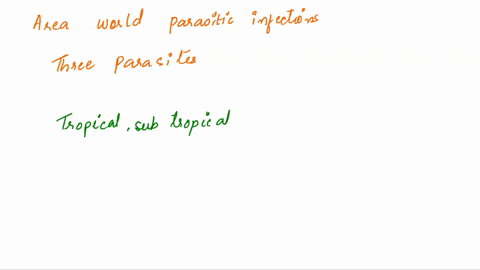 Area world parasitic infections
Three Parasites
Tropical, sub tropical